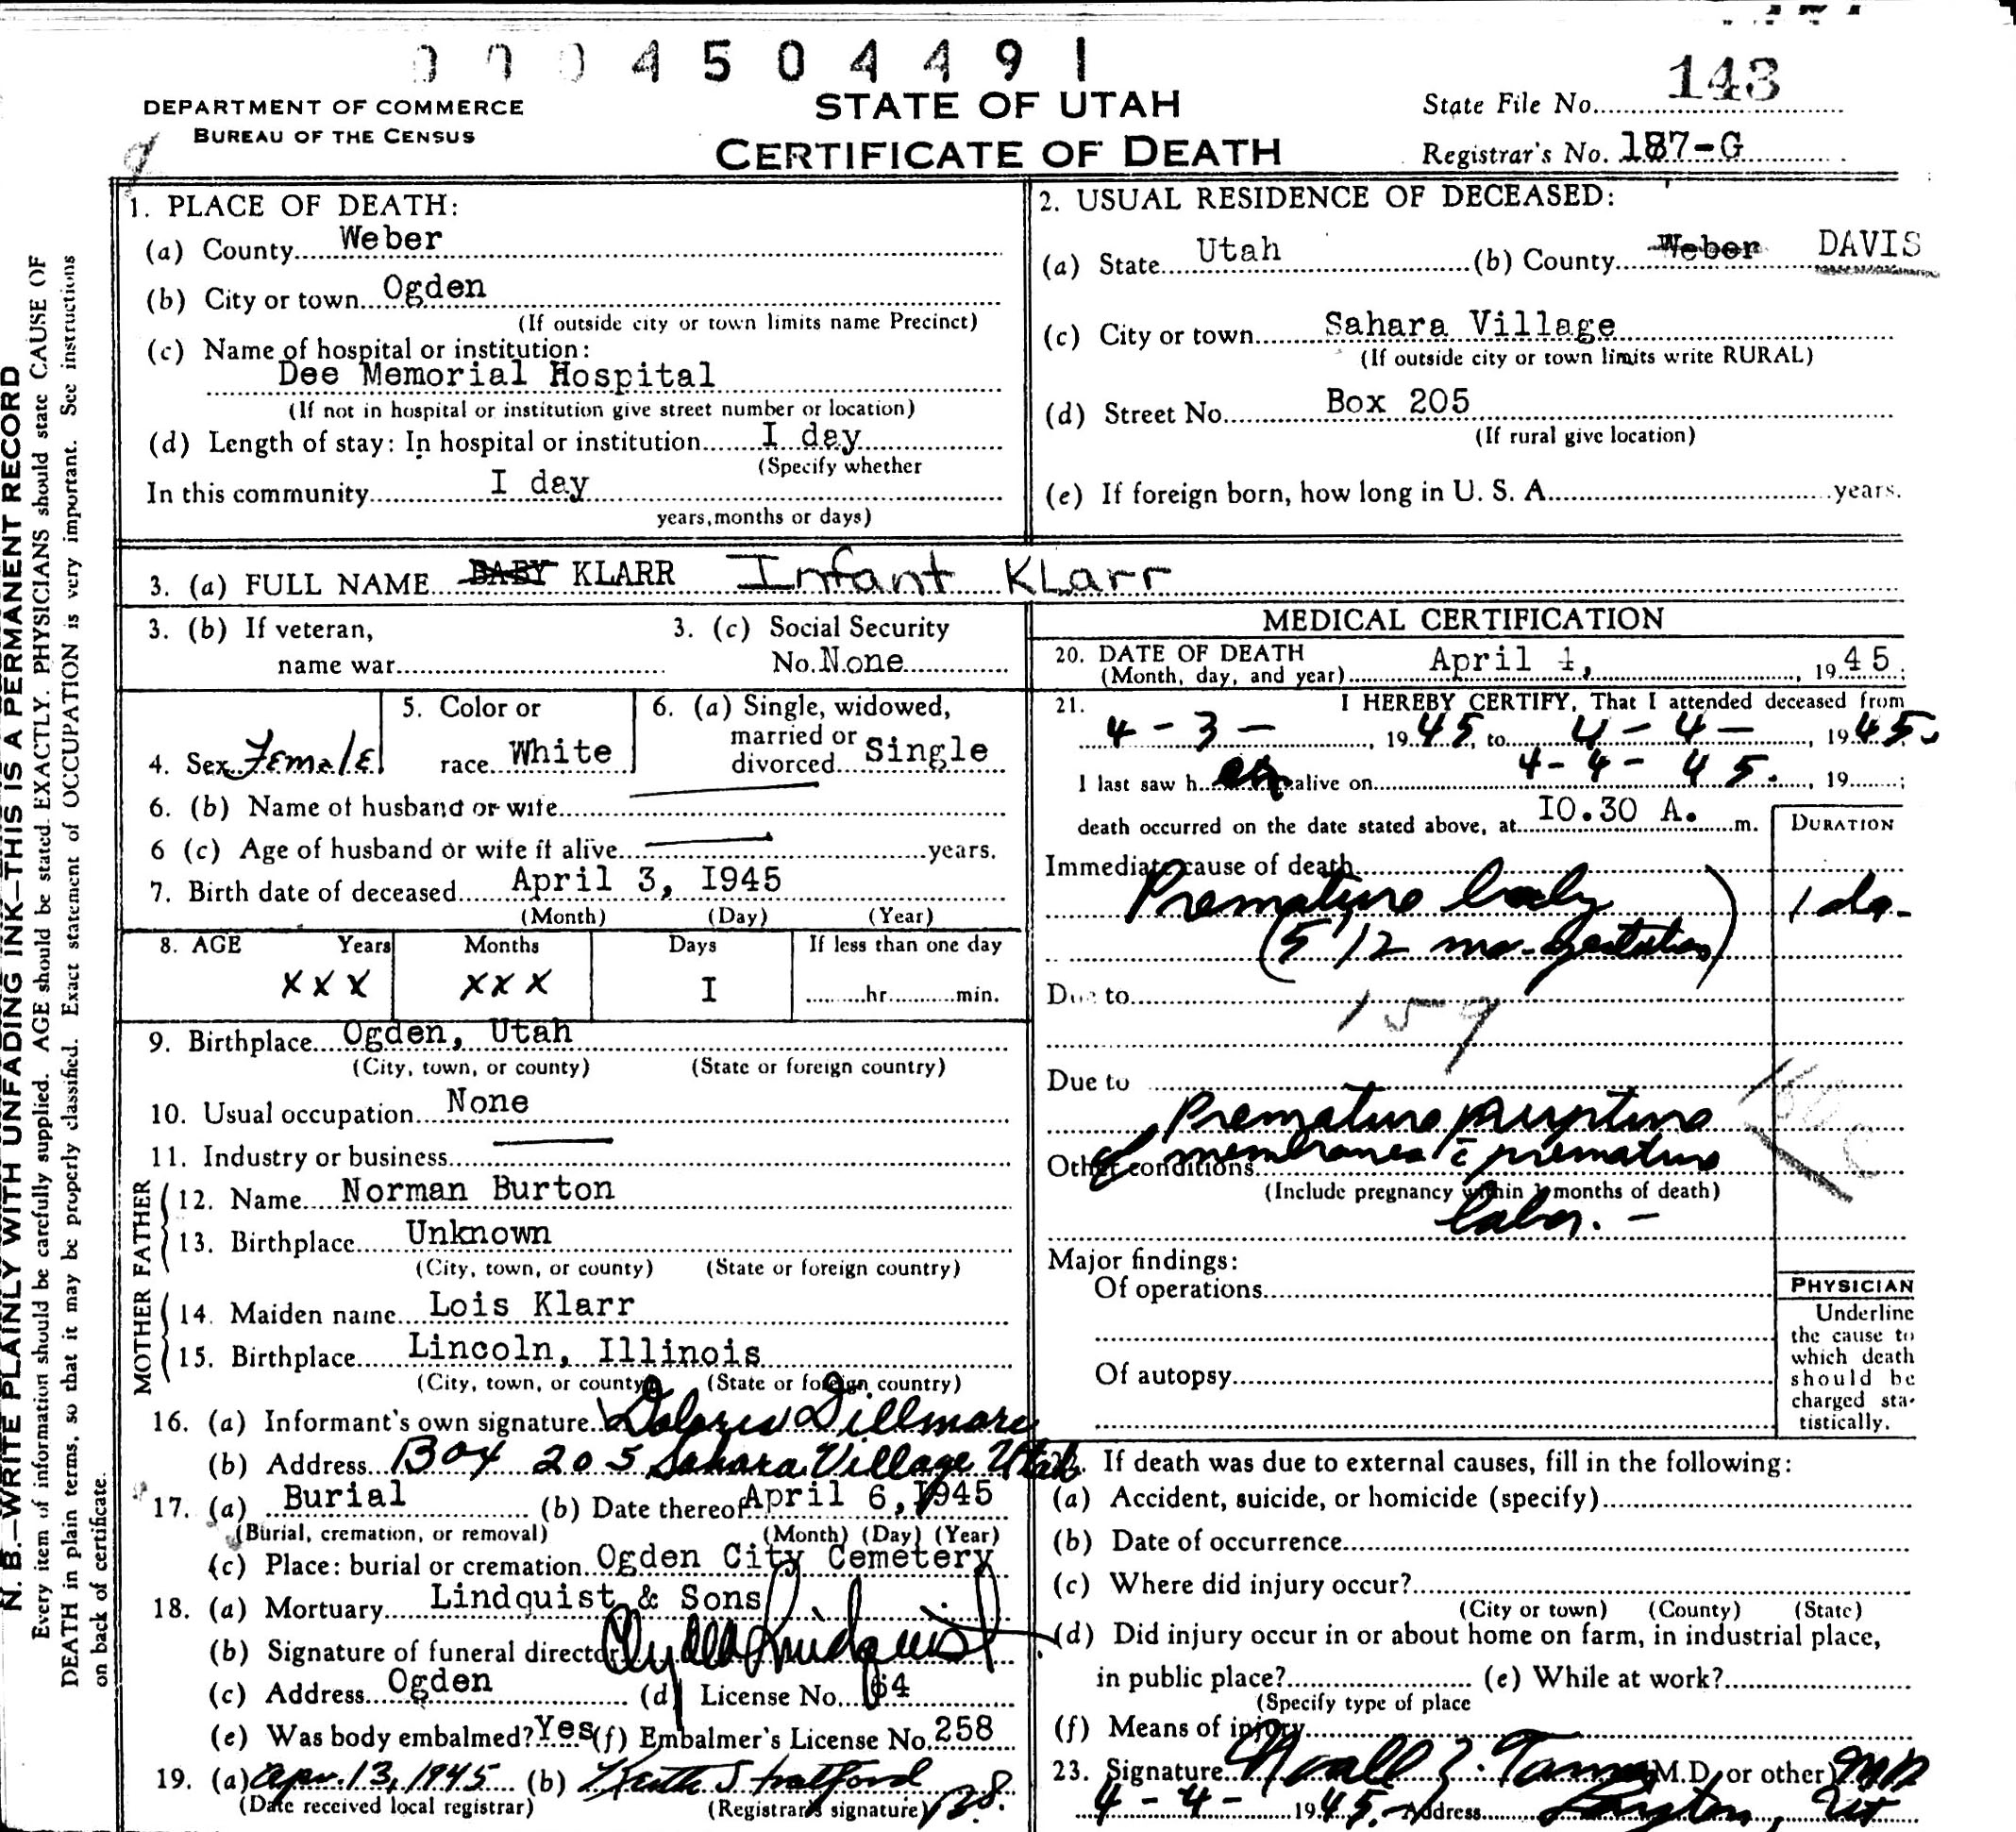 0004504491
DEPARTMENT OF COMMERCE
BUREAU OF THE CENSUS
STATE OF UTAH
CERTIFICATE OF DEATH
State File No. 143
Registrar's No. 187-G
N. B.—WRITE PLAINLY WITH UNFADING INK—THIS IS A PERMANENT RECORD
Every item of information should be carefully supplied. AGE should be stated EXACTLY. PHYSICIANS should state CAUSE OF
DEATH in plain terms, so that it may be properly classified. Exact statement of OCCUPATION is very important. See instructions
on back of certificate.
1. PLACE OF DEATH:
(a) County Weber
(b) City or town Ogden
(If outside city or town limits name Precinct)
(c) Name of hospital or institution:
Dee Memorial Hospital
(If not in hospital or institution give street number or location)
(d) Length of stay: In hospital or institution I day
(Specify whether
In this community I day
years, months or days)
2. USUAL RESIDENCE OF DECEASED:
(a) State Utah (b) County Weber DAVIS
(c) City or town Sahara Village
(If outside city or town limits write RURAL)
(d) Street No. Box 205
(If rural give location)
(e) If foreign born, how long in U. S. A. years.
3. (a) FULL NAME BABY KLARR Infant KLarr
3. (b) If veteran,
name war
3. (c) Social Security
No. None
4. Sex Female
5. Color or
race White
6. (a) Single, widowed,
married or
divorced Single
6. (b) Name of husband or wife
6 (c) Age of husband or wife if alive years.
7. Birth date of deceased April 3, I945
(Month) (Day) (Year)
8. AGE Years Months Days If less than one day
XXX XXX I hr. min.
9. Birthplace Ogden, Utah
(City, town, or county) (State or foreign country)
10. Usual occupation None
11. Industry or business
FATHER
12. Name Norman Burton
13. Birthplace Unknown
(City, town, or county) (State or foreign country)
MOTHER
14. Maiden name Lois Klarr
15. Birthplace Lincoln, Illinois
(City, town, or county) (State or foreign country)
16. (a) Informant's own signature Dolores Dillmore
(b) Address Box 205 Sahara Village Utah
17. (a) Burial (b) Date thereof April 6, 1945
(Burial, cremation, or removal) (Month) (Day) (Year)
(c) Place: burial or cremation Ogden City Cemetery
18. (a) Mortuary Lindquist & Sons
(b) Signature of funeral director Lindquist
(c) Address Ogden (d) License No. 64
(e) Was body embalmed? Yes (f) Embalmer's License No. 258
19. (a) Apr. 13, 1945 (b) Keith Stratford
(Date received local registrar) (Registrar's signature)
MEDICAL CERTIFICATION
20. DATE OF DEATH
(Month, day, and year) April 4, 1945.
21. I HEREBY CERTIFY, That I attended deceased from
4-3-, 1945, to 4-4-, 1945.
I last saw her alive on 4-4-45., 19 ;
death occurred on the date stated above, at IO.30 A. m.
DURATION
Immediate cause of death
Premature baby 1 da.
(5 1/2 mo. gestation)
Due to
159
Due to
Premature rupture
Other conditions of membranes c̄ premature
(Include pregnancy within 3 months of death)
labor. —
Major findings:
Of operations
Of autopsy
PHYSICIAN
Underline
the cause to
which death
should be
charged sta-
tistically.
If death was due to external causes, fill in the following:
(a) Accident, suicide, or homicide (specify)
(b) Date of occurrence
(c) Where did injury occur?
(City or town) (County) (State)
(d) Did injury occur in or about home on farm, in industrial place,
in public place? (e) While at work?
(Specify type of place
(f) Means of injury
23. Signature Noall Z. Tanner (M.D. or other) MD
4-4- 1945. Address Layton, Ut